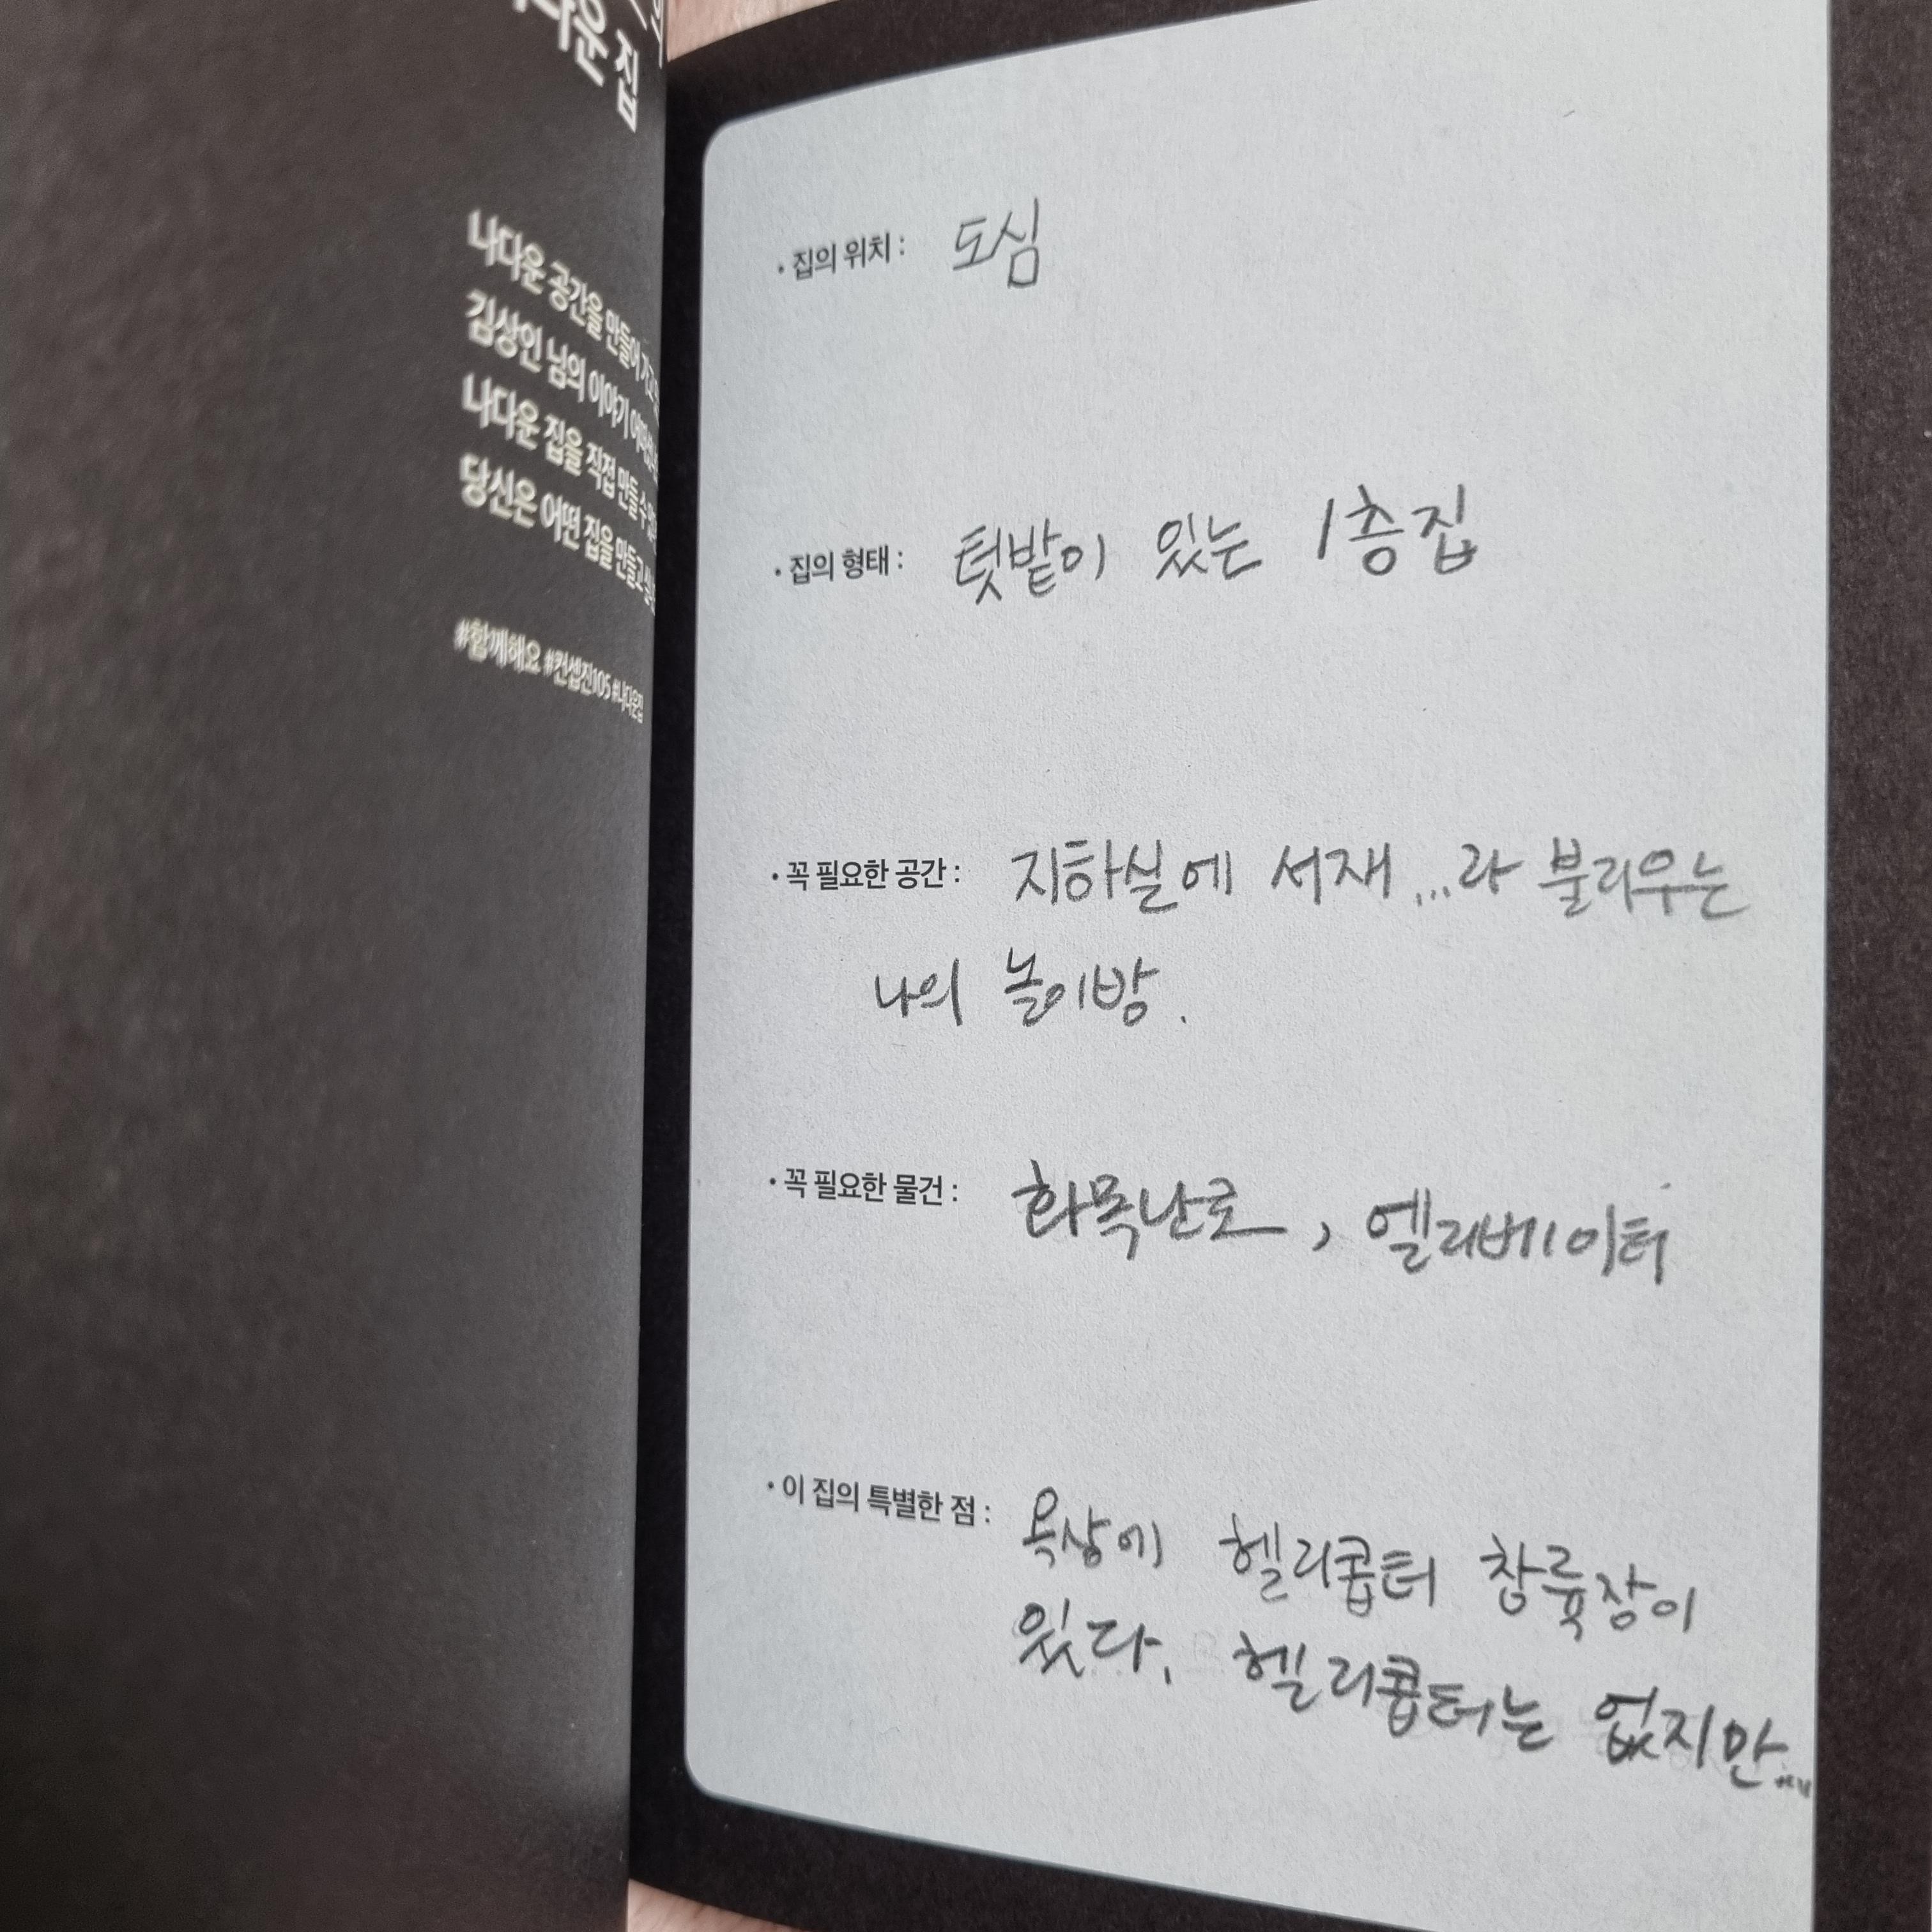 집
나다운 공간을 만들어
김상인 님의 이야기
나다운 집을 직접 만들 수
당신은 어떤 집을 만들고
#함께해요 #컨셉진105 #나다운집
• 집의 위치 : 도심
• 집의 형태 : 텃밭이 있는 1층집
• 꼭 필요한 공간 : 지하실에 서재 ...라 불리우는
나의 놀이방.
• 꼭 필요한 물건 : 화목난로, 엘리베이터
• 이 집의 특별한 점 : 옥상에 헬리콥터 착륙장이
있다. 헬리콥터는 없지만...